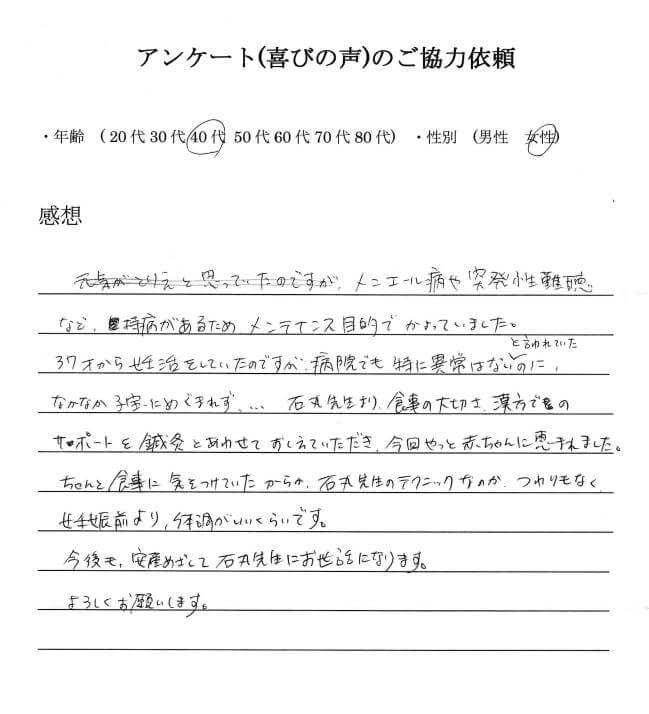 アンケート(喜びの声)のご協力依頼
・年齢 （20代 30代 40代 50代 60代 70代 80代） ・性別 （男性 女性）
感想
元気がとりえと思っていたのですが、メニエール病や突発性難聴
など、持病があるため メンテナンス目的で かよっていました。
と言われていた
37才から妊活をしていたのですが、病院でも特に異常はないのに、
なかなか子宝にめぐまれず、... 石丸先生より、食事の大切さ、漢方での
サポートを鍼灸とあわせて おしえていただき、今回やっと赤ちゃんに恵まれました。
ちゃんと食事に気をつけていたからか、石丸先生のテクニックなのか、つわりもなく、
妊娠前より、体調がいいくらいです。
今後も、安産めざして石丸先生にお世話になります。
よろしくお願いします。